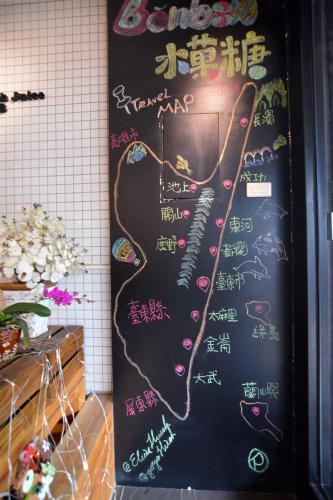 Bonbon
水菓糖
TRAVEL
MAP
長濱
高雄市
成功
池上
關山
東河
鹿野
都蘭
臺東市
臺東縣
太麻里
綠島
金崙
大武
蘭山嶼
屏東縣